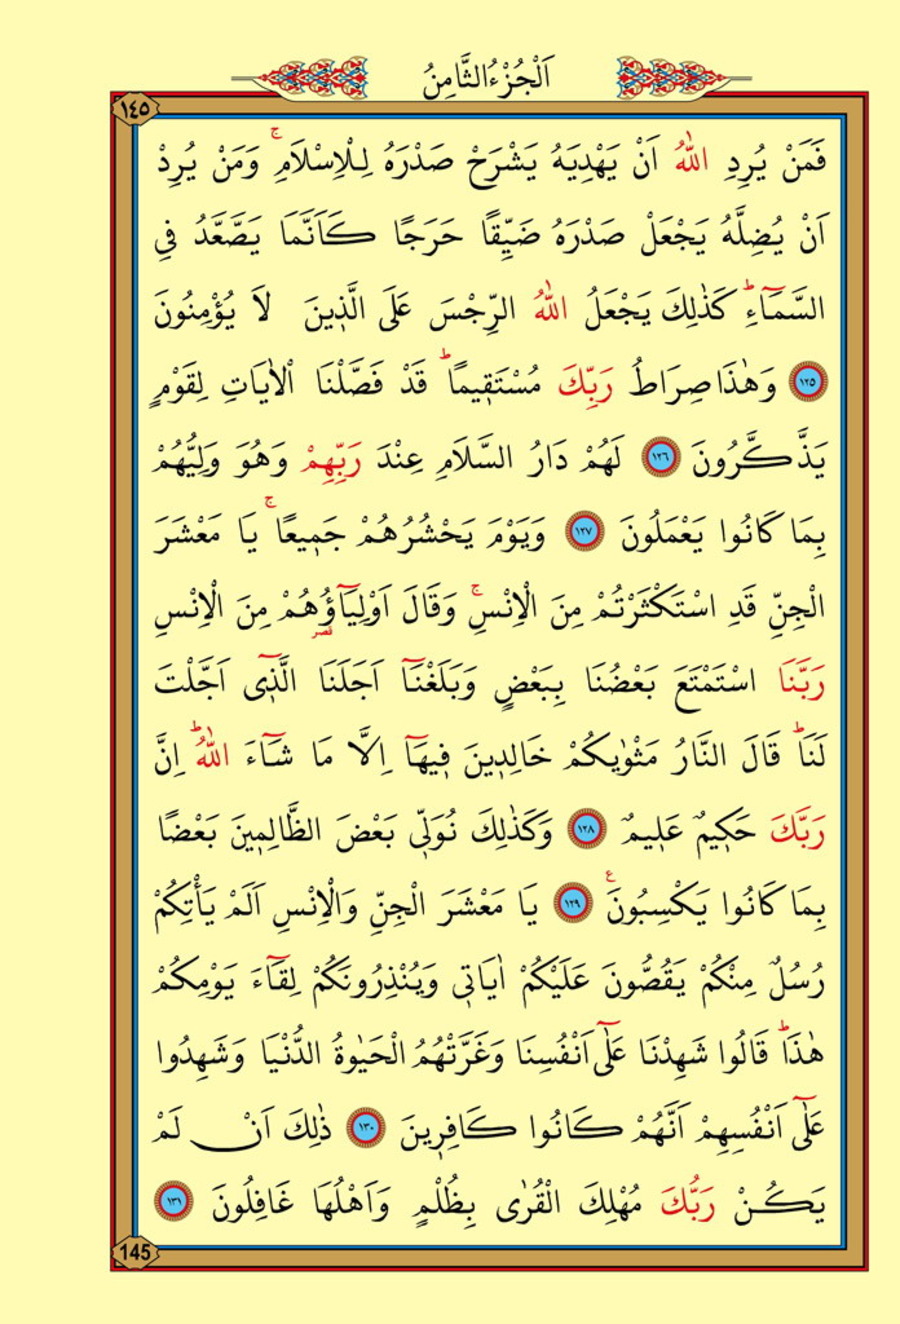 اَلْجُزْءُ الثَّامِنُ
١٤٥
فَمَنْ يُرِدِ اللّٰهُ اَنْ يَهْدِيَهُ يَشْرَحْ صَدْرَهُ لِلْاِسْلَامِۚ وَمَنْ يُرِدْ
اَنْ يُضِلَّهُ يَجْعَلْ صَدْرَهُ ضَيِّقًا حَرَجًا كَاَنَّمَا يَصَّعَّدُ فِي
السَّمَٓاءِۜ كَذٰلِكَ يَجْعَلُ اللّٰهُ الرِّجْسَ عَلَى الَّذ۪ينَ لَا يُؤْمِنُونَ
﴿١٢٥﴾ وَهٰذَا صِرَاطُ رَبِّكَ مُسْتَق۪يمًاۜ قَدْ فَصَّلْنَا الْاٰيَاتِ لِقَوْمٍ
يَذَّكَّرُونَ ﴿١٢٦﴾ لَهُمْ دَارُ السَّلَامِ عِنْدَ رَبِّهِمْ وَهُوَ وَلِيُّهُمْ
بِمَا كَانُوا يَعْمَلُونَ ﴿١٢٧﴾ وَيَوْمَ يَحْشُرُهُمْ جَم۪يعًاۚ يَا مَعْشَرَ
الْجِنِّ قَدِ اسْتَكْثَرْتُمْ مِنَ الْاِنْسِۚ وَقَالَ اَوْلِيَٓاؤُ۬هُمْ مِنَ الْاِنْسِ
قصر
رَبَّنَا اسْتَمْتَعَ بَعْضُنَا بِبَعْضٍ وَبَلَغْنَٓا اَجَلَنَا الَّذ۪ٓي اَجَّلْتَ
لَنَاۜ قَالَ النَّارُ مَثْوٰيكُمْ خَالِد۪ينَ ف۪يهَٓا اِلَّا مَا شَٓاءَ اللّٰهُۜ اِنَّ
رَبَّكَ حَك۪يمٌ عَل۪يمٌ ﴿١٢٨﴾ وَكَذٰلِكَ نُوَلّ۪ي بَعْضَ الظَّالِم۪ينَ بَعْضًا
بِمَا كَانُوا يَكْسِبُونَ ع ﴿١٢٩﴾ يَا مَعْشَرَ الْجِنِّ وَالْاِنْسِ اَلَمْ يَأْتِكُمْ
رُسُلٌ مِنْكُمْ يَقُصُّونَ عَلَيْكُمْ اٰيَات۪ي وَيُنْذِرُونَكُمْ لِقَٓاءَ يَوْمِكُمْ
هٰذَاۜ قَالُوا شَهِدْنَا عَلٰٓى اَنْفُسِنَا وَغَرَّتْهُمُ الْحَيٰوةُ الدُّنْيَا وَشَهِدُوا
عَلٰٓى اَنْفُسِهِمْ اَنَّهُمْ كَانُوا كَافِر۪ينَ ﴿١٣٠﴾ ذٰلِكَ اَنْ لَمْ
يَكُنْ رَبُّكَ مُهْلِكَ الْقُرٰى بِظُلْمٍ وَاَهْلُهَا غَافِلُونَ ﴿١٣١﴾
145